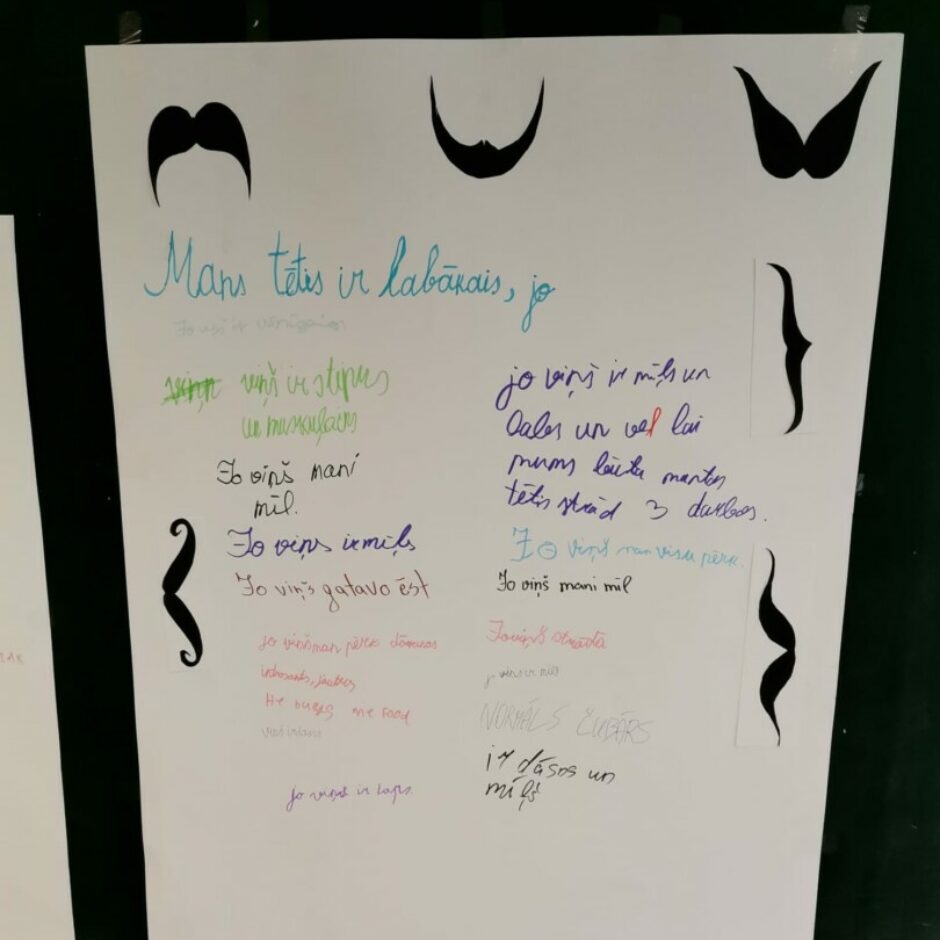 Mans tētis ir labākais, jo
Jo viņš ir
viņš ir stiprs
un muskuļains
Jo viņš mani
mīl.
Jo viņš ir mīļs
Jo viņš gatavo ēst
jo viņš man pērk dāvanas
interesants, jautrs
He buys me food
jo viņš ir labs
jo viņš ir mīļs un
labs un vēl lai
mums būtu mantas
tētis strād 3 darbos.
Jo viņš man visu pērk.
Jo viņš mani mīl
Jo viņš strādā
jo viņš ir mīļš
NORMĀLS ČUBĀRS
ir dāsns un
mīļš